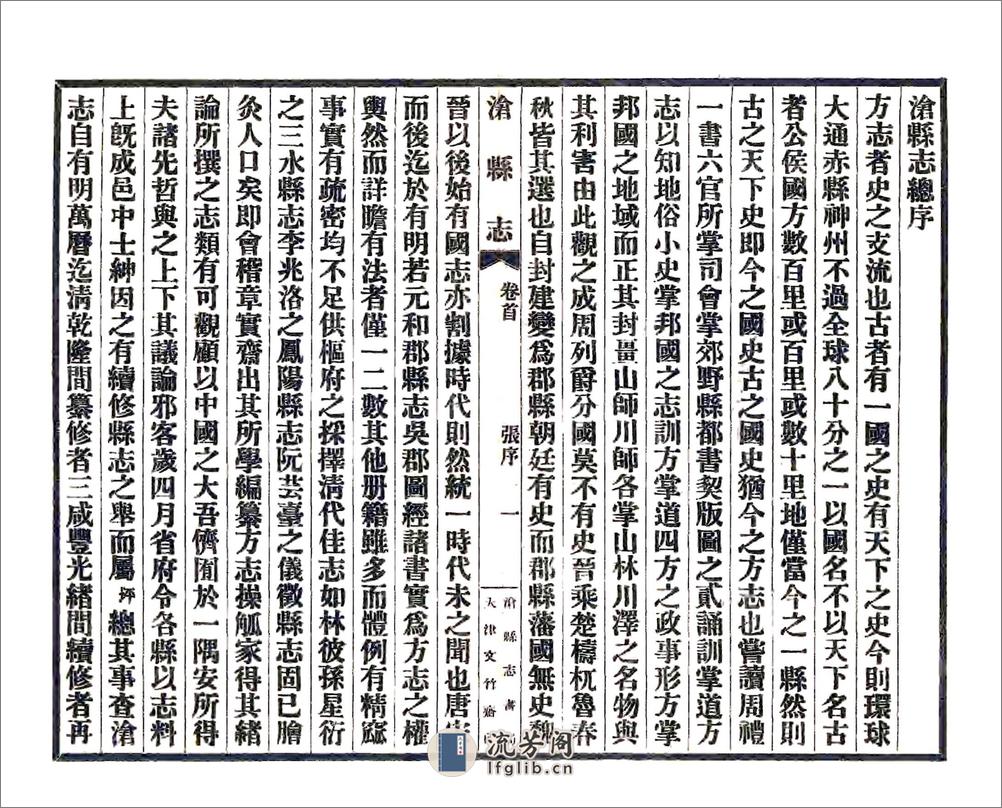 滄縣志總序
方志者史之支流也古者有一國之史有天下之史今則環球
大通赤縣神州不過全球八十分之一以國名不以天下名古
者公侯國方數百里或百里或數十里地僅當今之一縣然則
古之天下史即今之國史古之國史猶今之方志也嘗讀周禮
一書六官所掌司會掌郊野縣都書契版圖之貳誦訓掌道方
志以知地俗小史掌邦國之志訓方掌道四方之政事形方掌
邦國之地域而正其封畺山師川師各掌山林川澤之名物與
其利害由此觀之成周列爵分國莫不有史晉乘楚檮杌魯春
秋皆其選也自封建變爲郡縣朝廷有史而郡縣藩國無史魏
滄縣志 卷首 張序 一
滄縣志書
天津文竹齋
晉以後始有國志亦割據時代則然統一時代未之聞也唐宋
而後迄於有明若元和郡縣志吳郡圖經諸書實爲方志之權
輿然而詳瞻有法者僅一二數其他册籍雖多而體例有精窳
事實有疏密均不足供樞府之採擇淸代佳志如林彼孫星衍
之三水縣志李兆洛之鳳陽縣志阮芸臺之儀徵縣志固已膾
炙人口矣即會稽章實齋出其所學編纂方志操觚家得其緒
論所撰之志類有可觀顧以中國之大吾儕囿於一隅安所得
夫諸先哲與之上下其議論邪客歲四月省府令各縣以志料
上旣成邑中士紳因之有續修縣志之舉而屬坪總其事查滄
志自有明萬曆迄淸乾隆間纂修者三咸豐光緒間續修者再
流芳閣
lfglib.cn